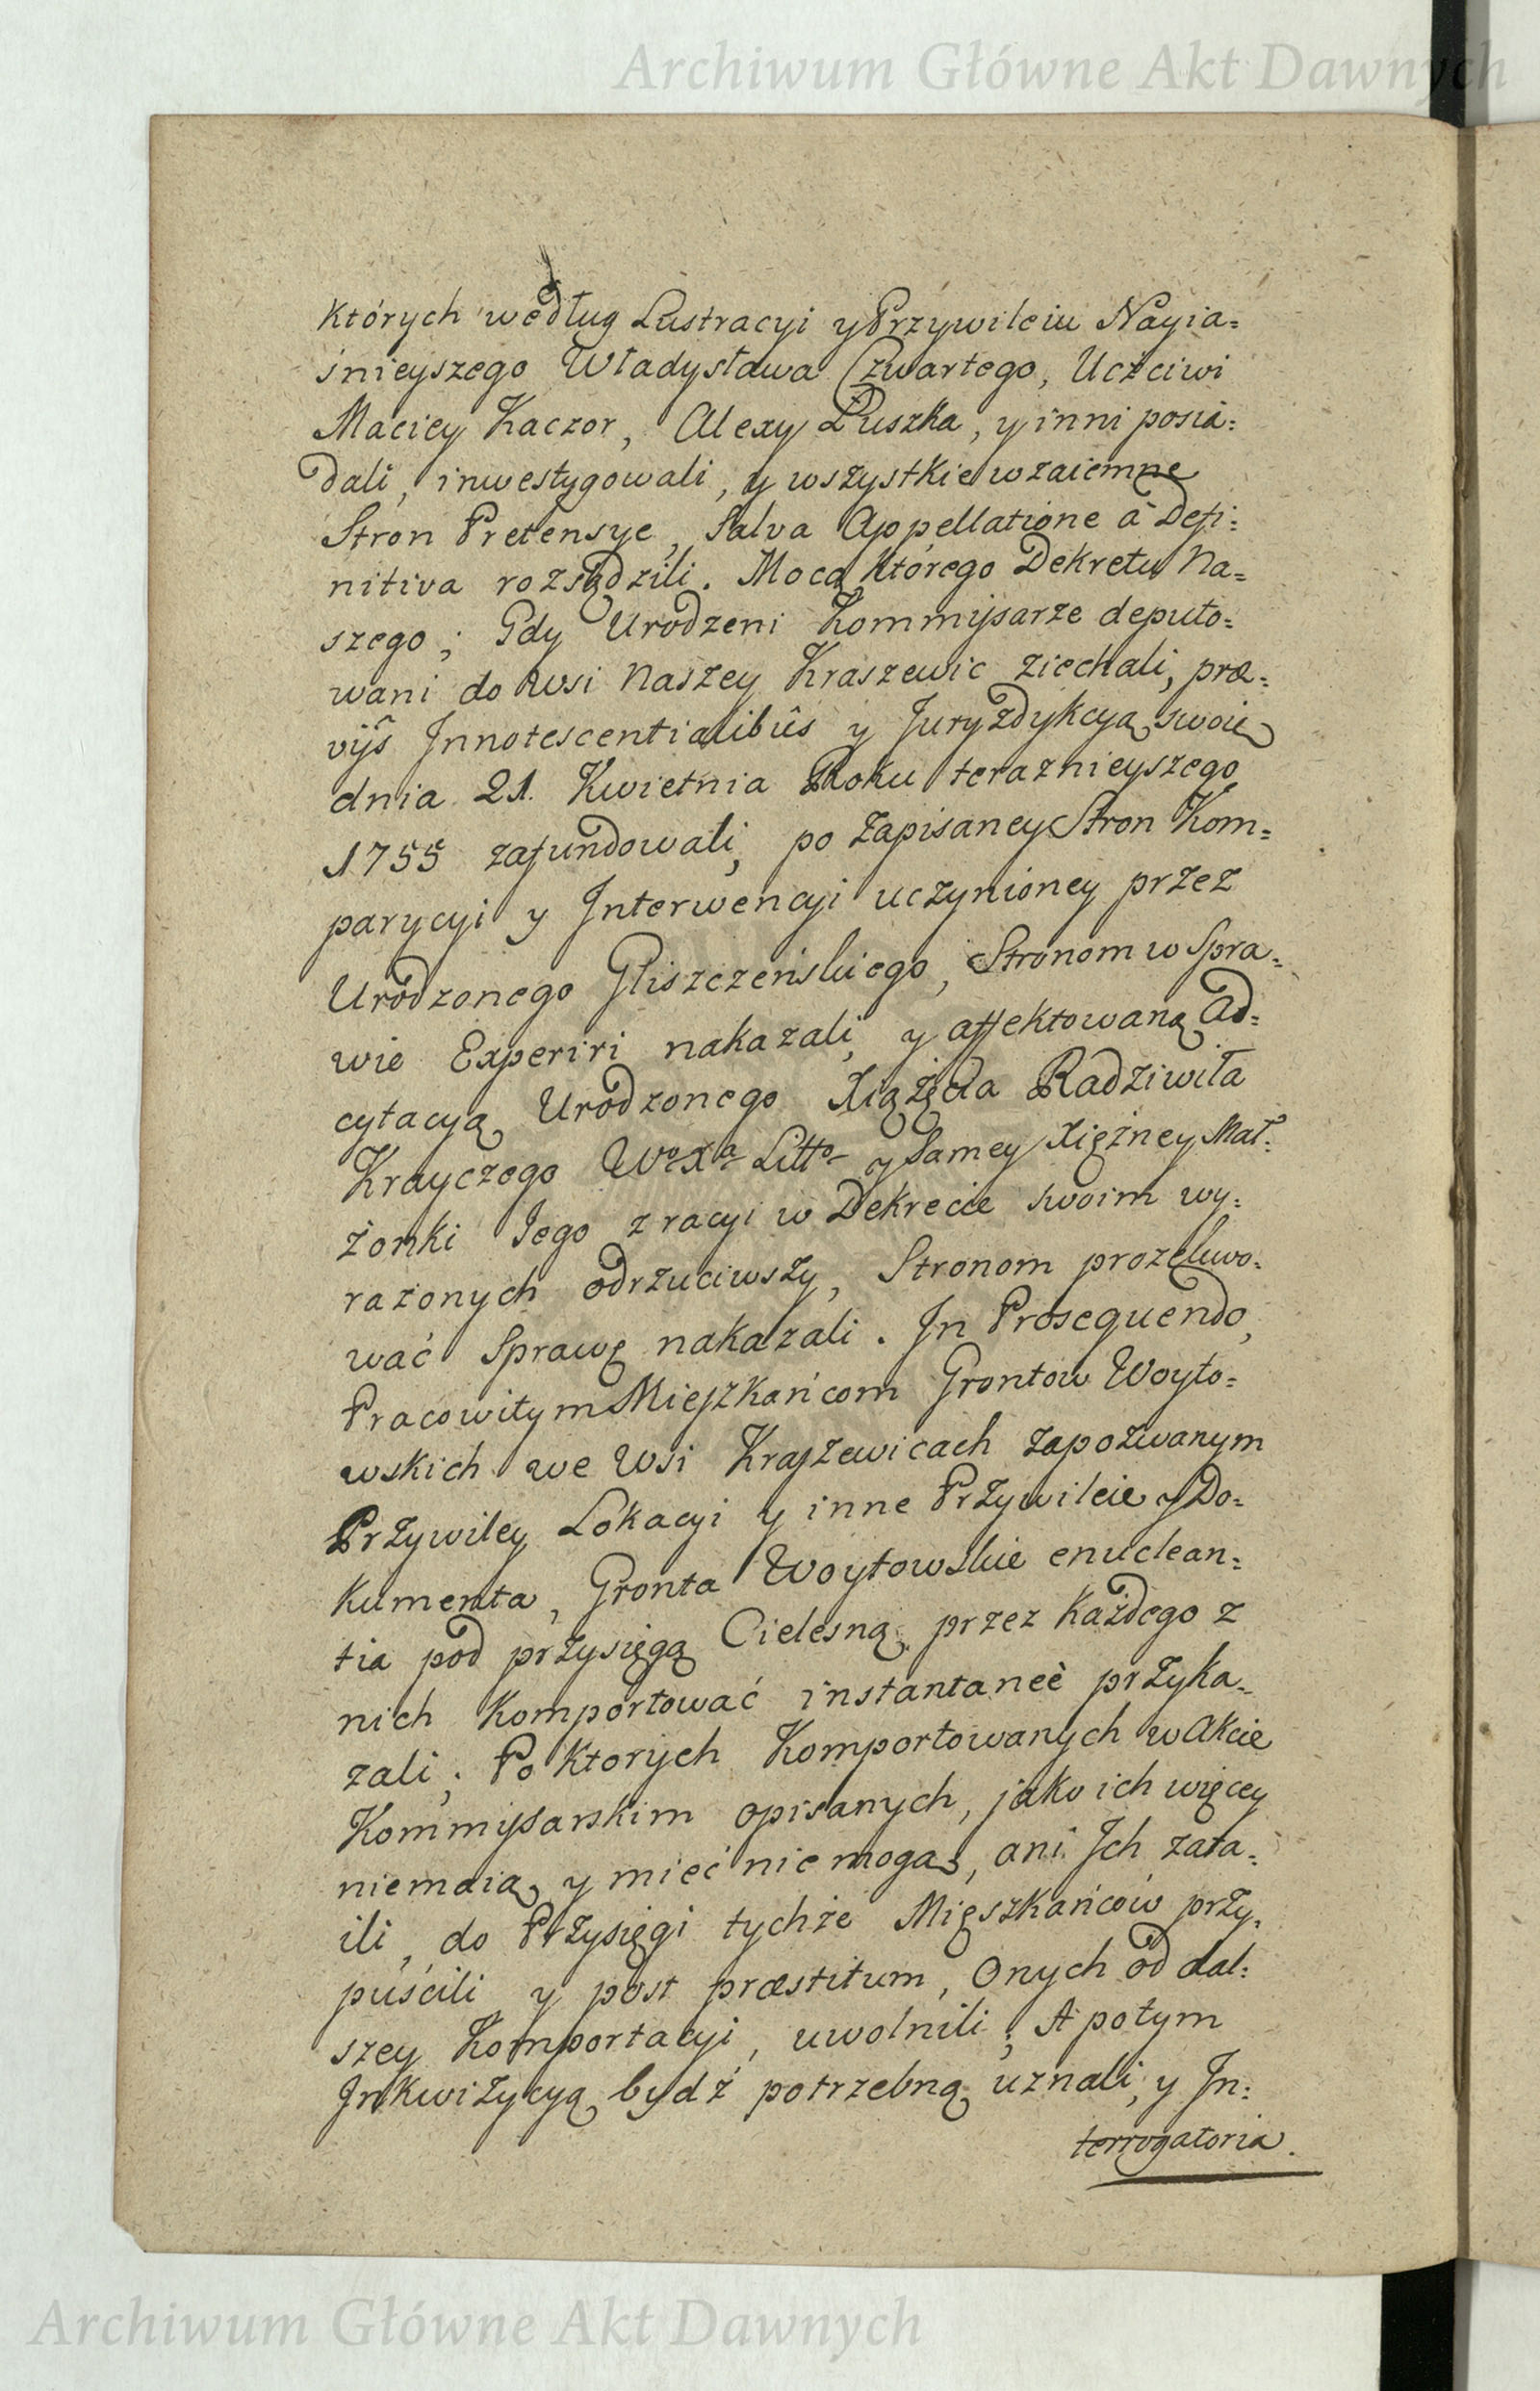 Archiwum Główne Akt Dawnych
których według Lustracyi y Przywileiu Nayia=
śnieyszego Władysława Czwartego, Uczciwi
Maciey Kaczor, Alexy Puszka, y inni posia=
dali, inwestygowali, y wszystkie wzaiemne
Stron Pretensye, Salva Appellatione a Defi=
nitiva rozsądzili. Mocą którego Dekretu Na=
szego; Gdy Urodzeni Kommissarze deputo=
wani do Wsi Naszey Kraszewic ziechali, præ=
vijs Innotescentialibûs y Juryzdykcyą swoię
dnia 21. Kwietnia Roku teraznieyszego
1755 zafundowali, po zapisaney Stron Kom=
parycyi y Interwencyi uczynioney przez
Urodzonego Gliszczeńskiego, Stronom w Spra=
wie Experiri nakazali, y affektowaną Ad=
cytacyą Urodzonego Xiążęcia Radziwiła
Krayczego Wo Xa Litto y Samey Xiężney Mał=
żonki Jego z racyi w Dekrecie swoim wy=
rażonych odrzuciwszy, Stronom prozekwo=
wać Sprawę nakazali. In Prosequendo,
Pracowitym Mieszkańcom Grontow Woyto=
wskich we Wsi Kraszewicach zapozwanym
Przywiley Lokacyi y inne Przywileie y Do=
kumenta, Gronta Woytowskie enuclean=
tia pod przysięgą Cielesną przez każdego z
nich komportować instantaneè przyka=
zali; Po ktorych Komportowanych w Akcie
Kommissarskim opisanych, jako ich więcey
niemaią y mieć nie mogą, ani Ich zata=
ili, do Przysięgi tychże Mięszkańców przy=
puścili y post præstitum, Onych od dal=
szey Komportacyi, uwolnili; A potym
Inkwizycyą bydź potrzebną uznali, y In=
terrogatoria.
Archiwum Główne Akt Dawnych